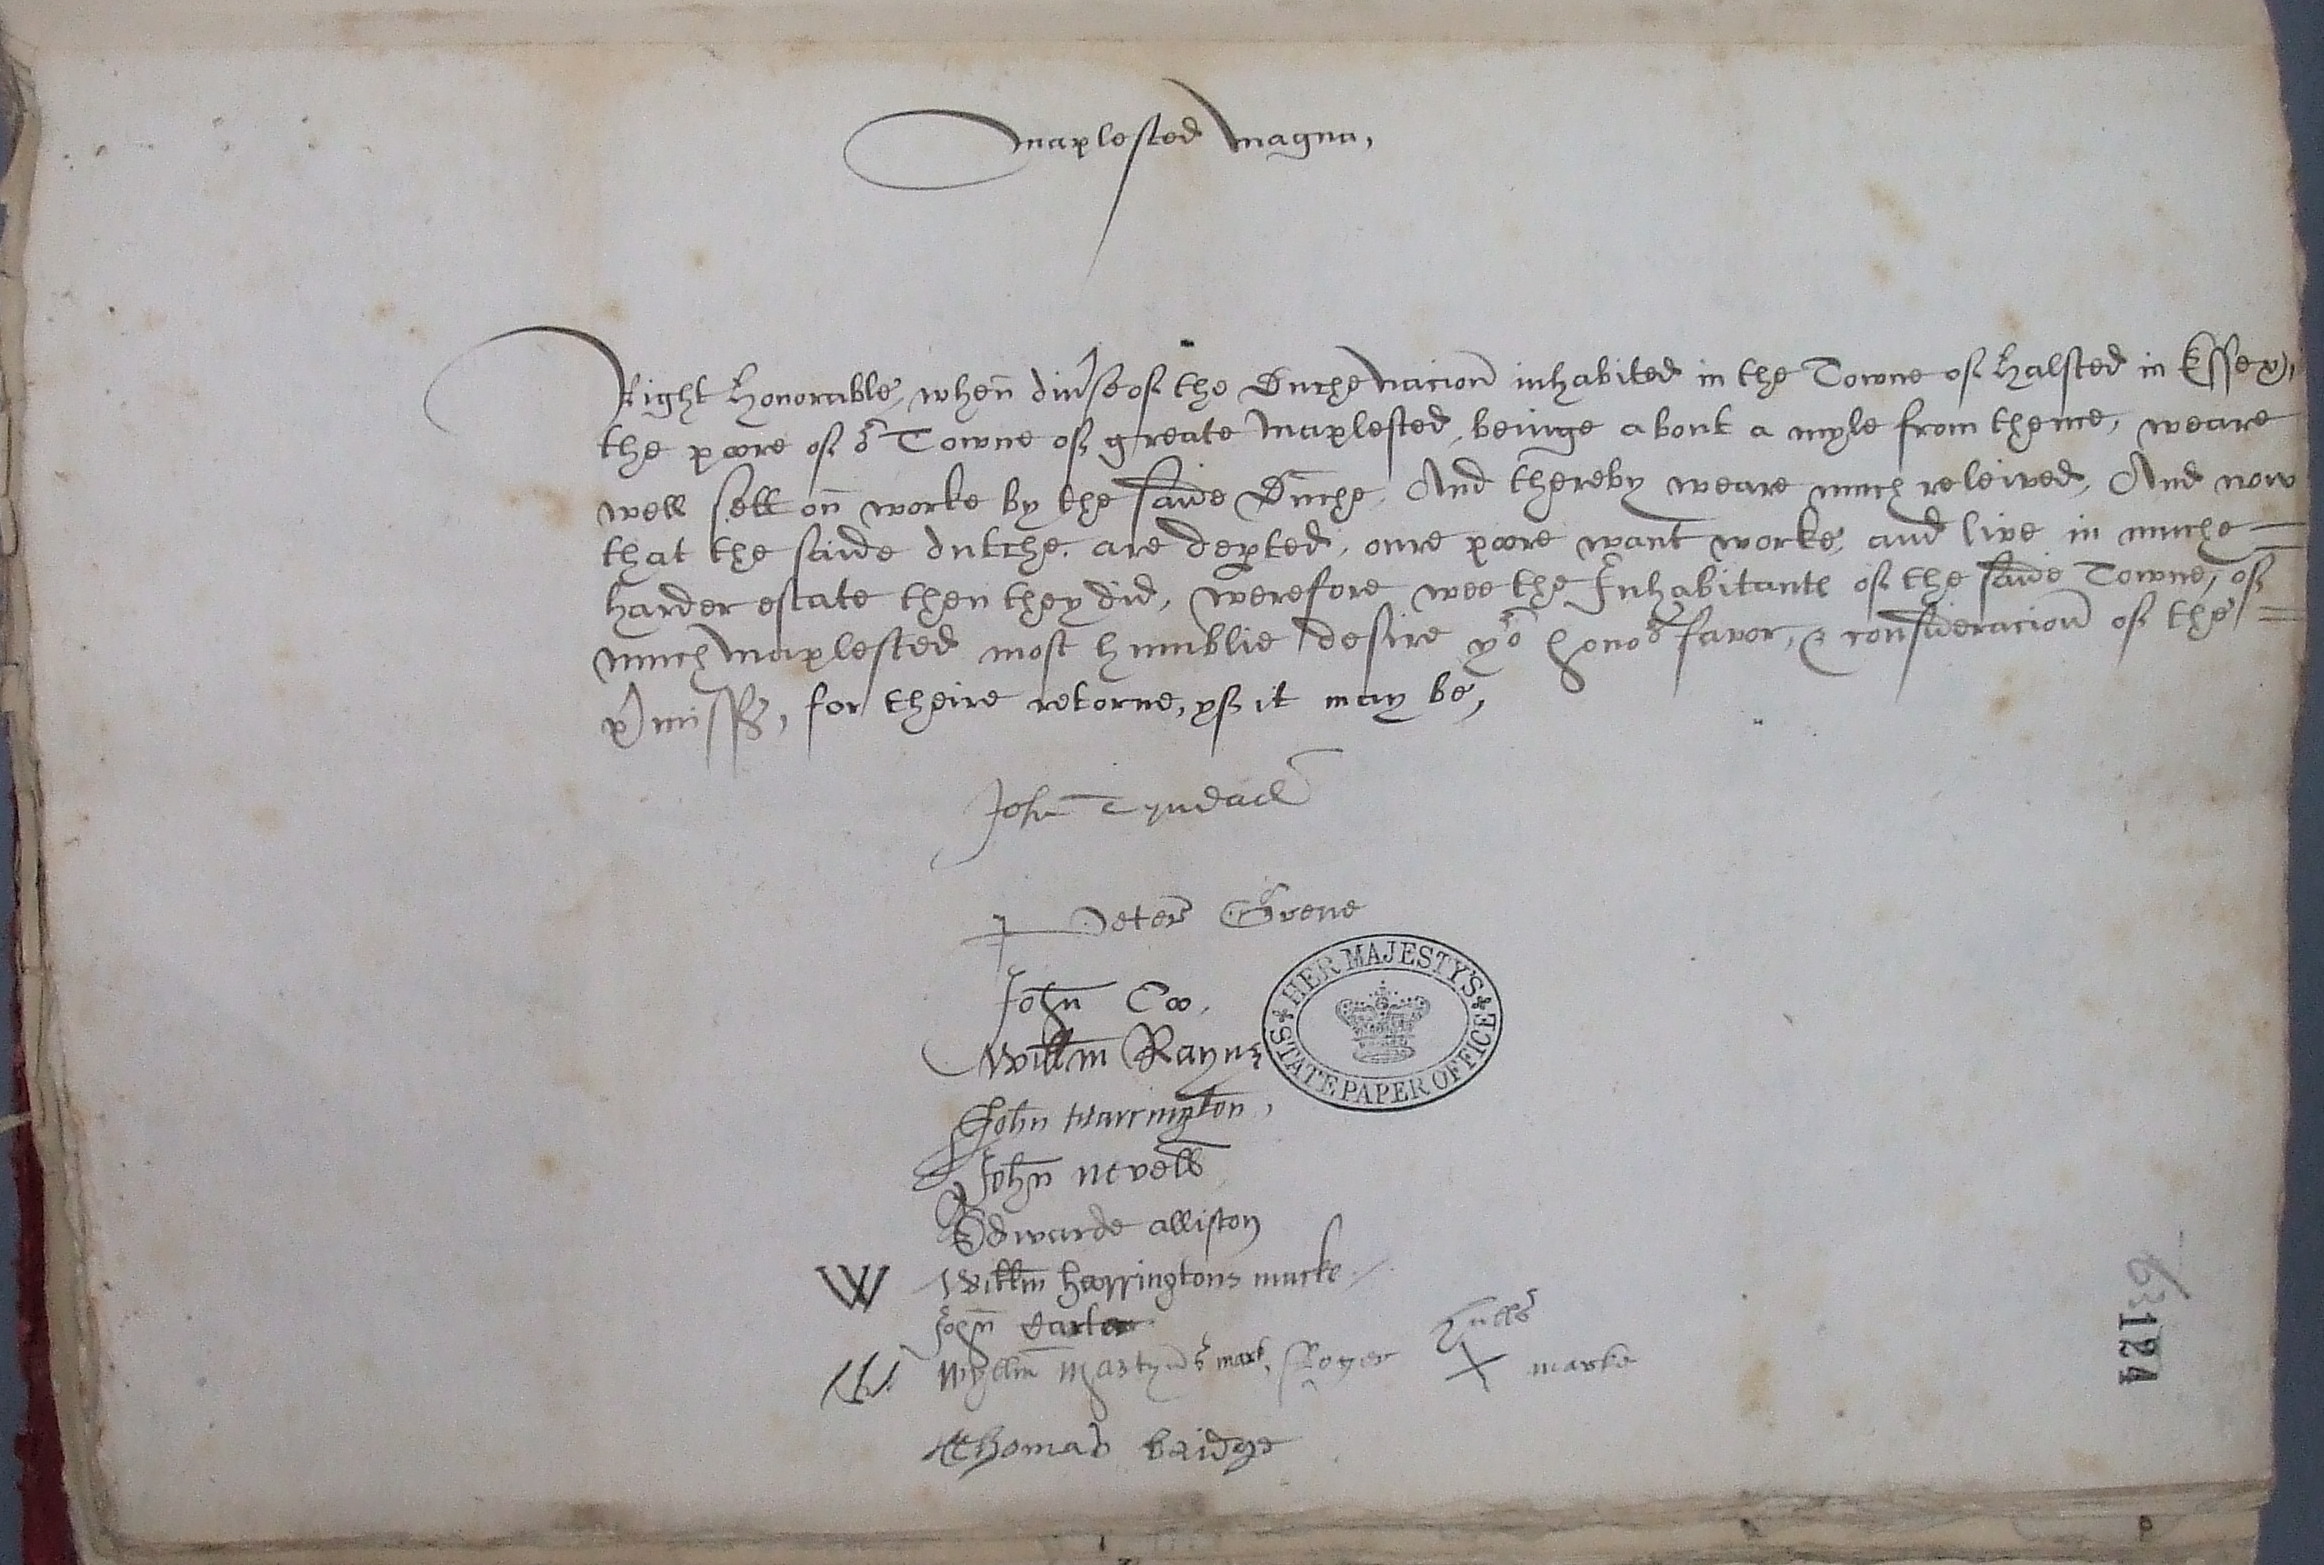 Maplested Magna,
Right honorable, when diu'se of the Duche nacion inhabited in the Towne of halsted in Essex,
the poore of or Towne of greate Maplested, beinge about a myle from thence, weare
well sett on worke by the saide Duche, And thereby weare much releived, And now
that the saide dutche are dep'ted, oure poore want worke, and live in muche
harder estate then they did, Werefore wee the Inhabitants of the saide Towne, of
much Maplested most humblie desire yor honors favor, & consideracion of the
p'misses, for theire retorne, yf it may be,
John Tyndall
Peter Grene
John Coo,
Willm Rayne
John Harrington,
John Nevell
Edwarde alliston
W Willm harringtons marke
John Carter
W Wyllm Martyns mark, Roger marke
Thomas bridge
HER MAJESTY'S STATE PAPER OFFICE
63
124